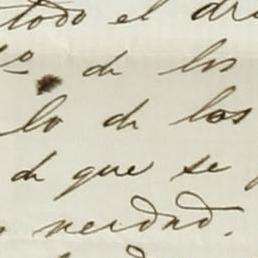 todo el
de los
lo de los
de que se
verdad.